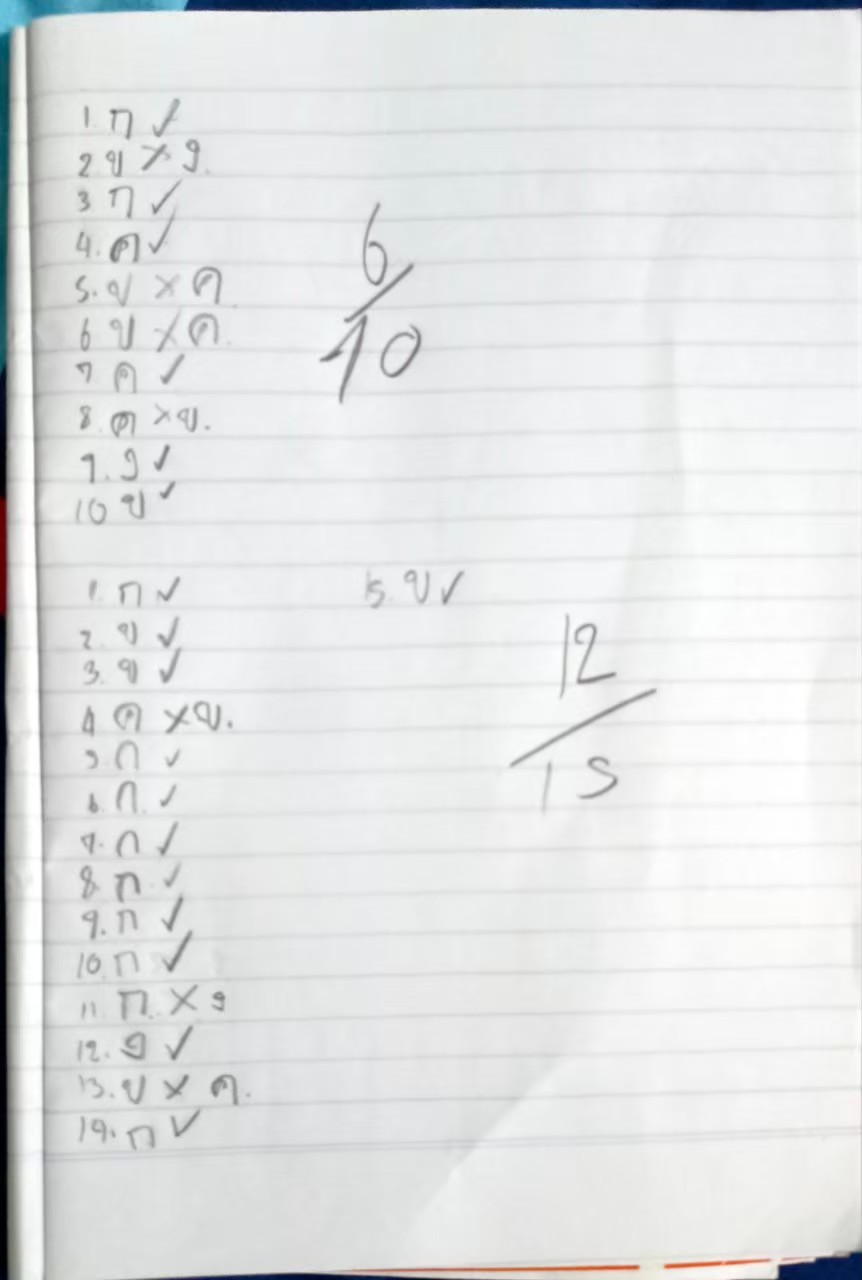 1. ก ✓
2 ข × ง.
3 ก ✓
4. ค ✓
5. ข × ค.
6 ข × ค.
7 ค ✓
8. ค × ข.
9. ง ✓
10 ข ✓
6/10
1. ก ✓
2. ข ✓
3. ข ✓
4 ค × ข.
5 ก ✓
6. ก. ✓
7. ก ✓
8. ก ✓
9. ก ✓
10. ก ✓
11 ก. × ง
12. ง ✓
13. ข × ค.
14. ก ✓
15. ข ✓
12/15